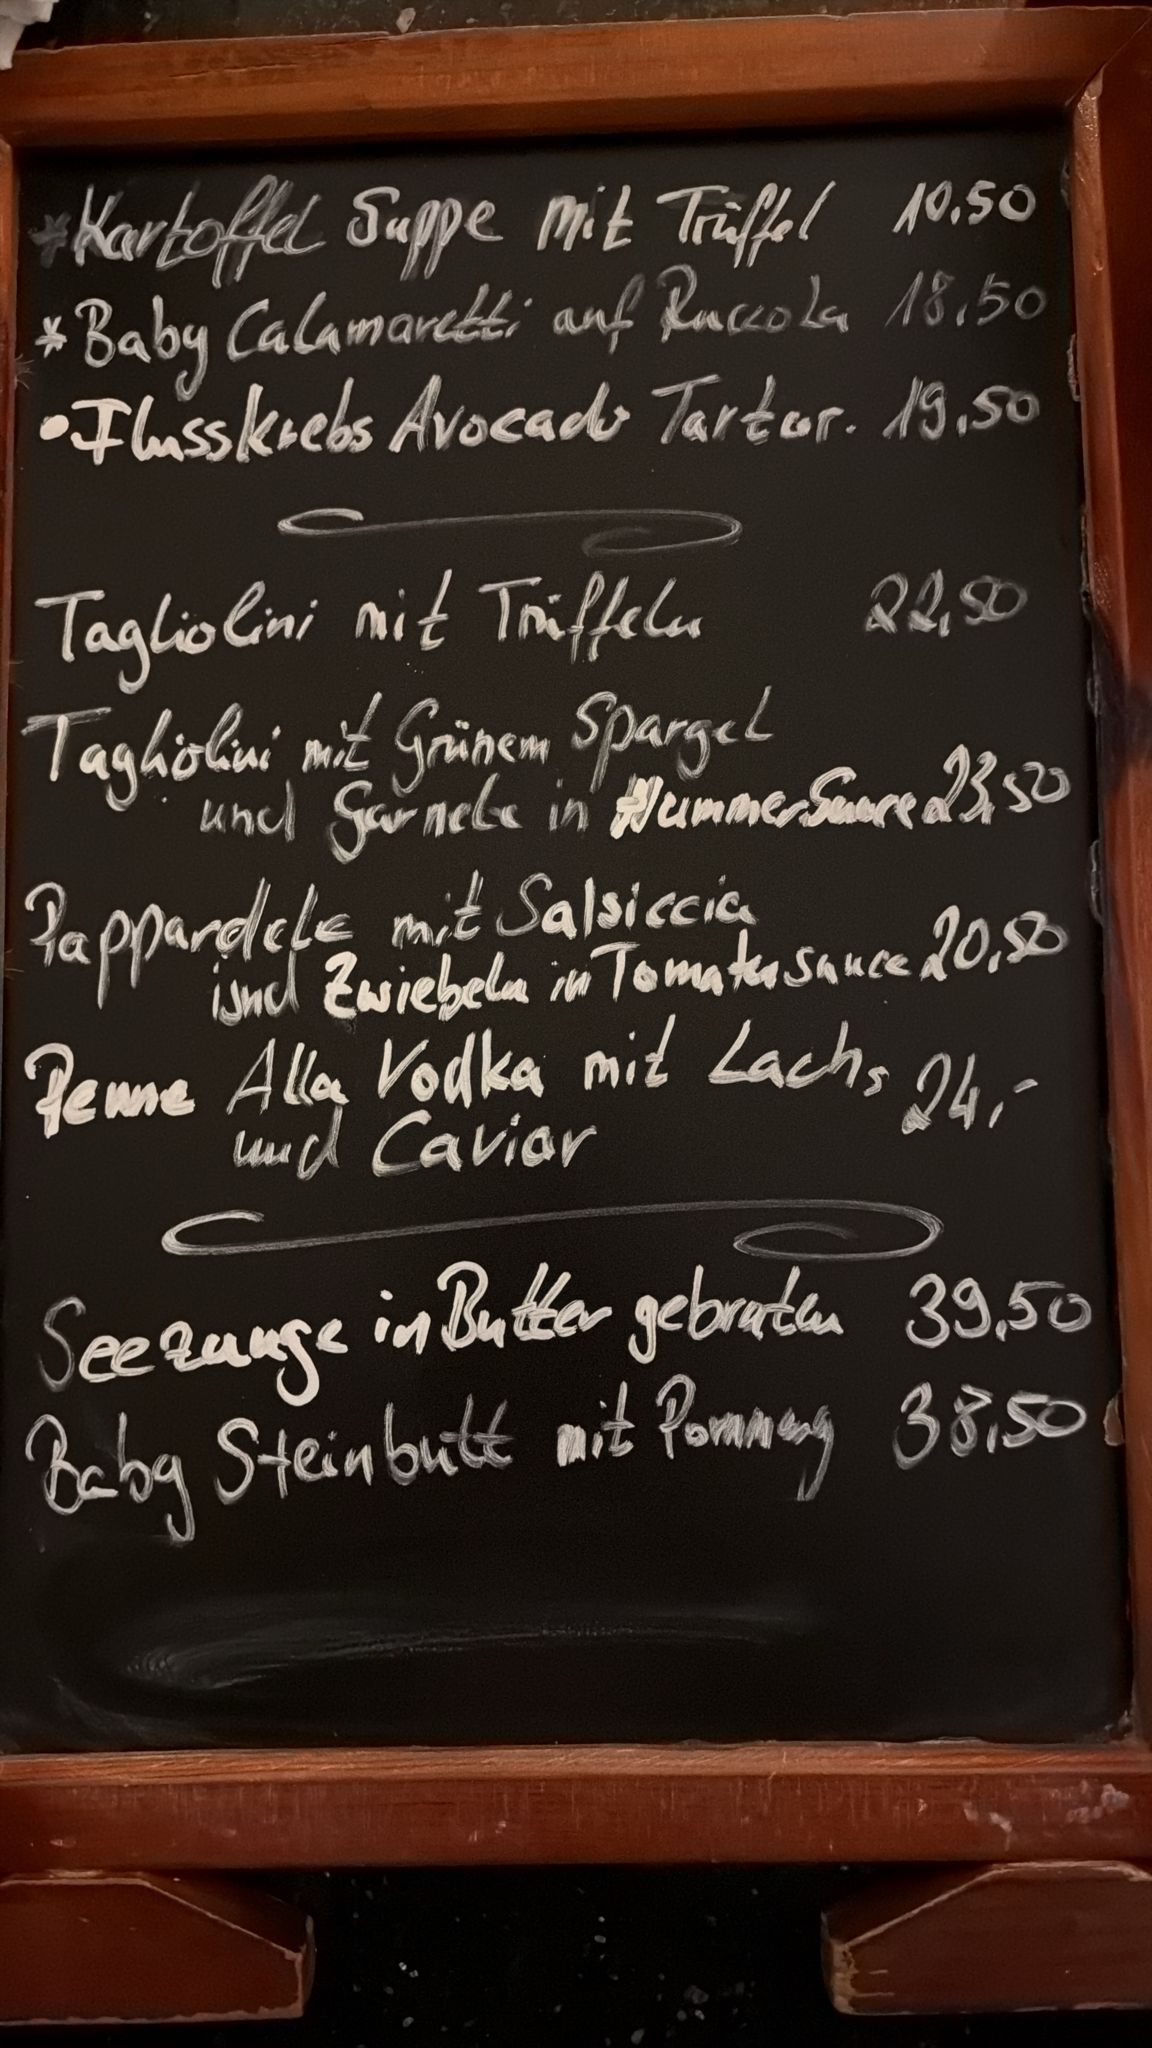 *Kartoffel Suppe mit Trüffel 10.50
*Baby Calamaretti auf Ruccola 18.50
•Flusskrebs Avocado Tartar. 19.50
Tagliolini mit Trüffeln 22,50
Tagliolini mit Grünem Spargel
und Garnele in HummerSauce 23,50
Pappardele mit Salsiccia
und Zwiebeln in Tomatensauce 20,50
Penne Alla Vodka mit Lachs 24,-
und Caviar
Seezunge in Butter gebraten 39,50
Baby Steinbutt mit 38,50